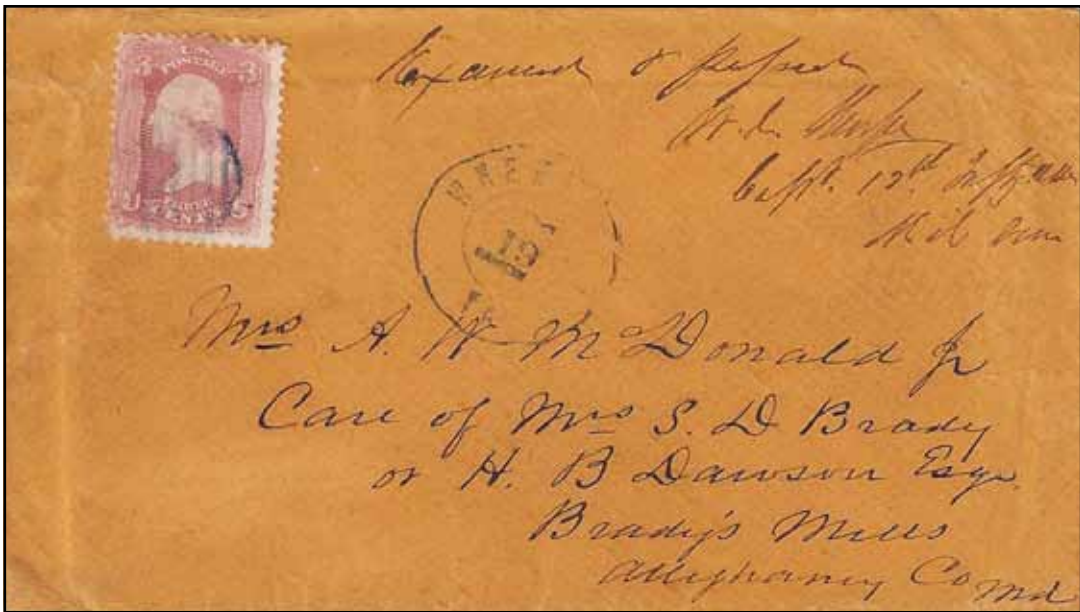 U.S.
POSTAGE
3 3
CENTS
Examined & passed
Capt. 12th
WHEE
15
Mrs A. W. McDonald Jr
Care of Mrs S. D Brady
or H. B Dawson Esqr.
Brady's Mills
Alleghaney Co Md